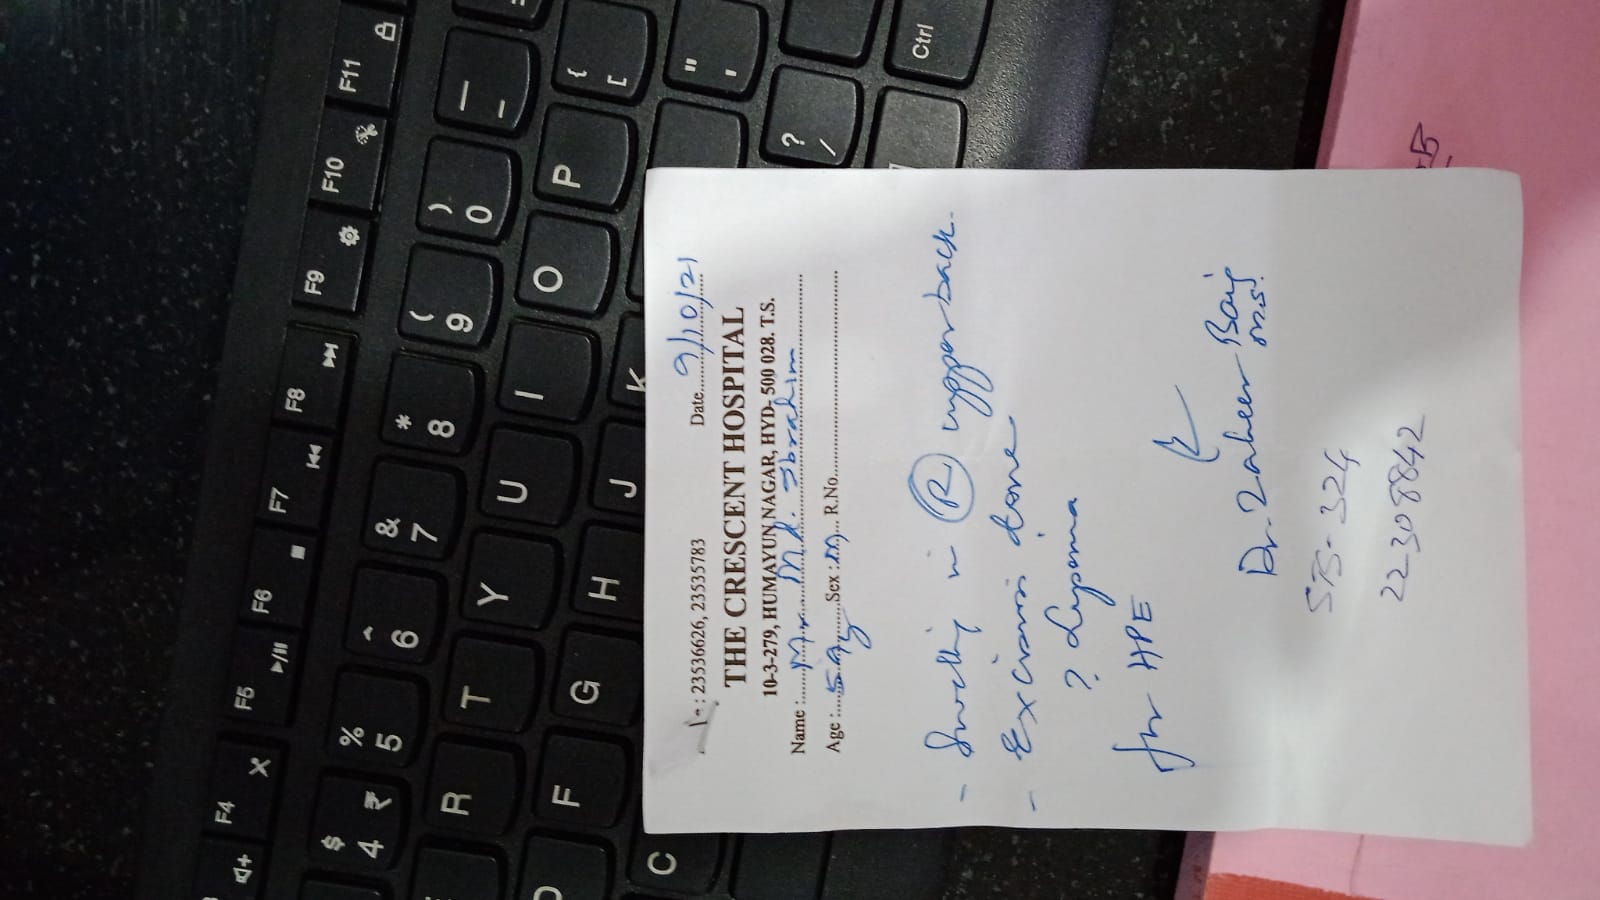 : 23536626, 23535783 Date 9/10/21
THE CRESCENT HOSPITAL
10-3-279, HUMAYUN NAGAR, HYD- 500 028. T.S.
Name : Mr. Md. Ibrahim
Age : Sex : M R.No.
- Swelling in R upper back.
- Excision done
? Lipoma
for HPE
Dr. Zaheer Baig
M.S.
STS-324
22308842
F4 F5 F6 F7 F8 F9 F10 F11
$ 4 ₹ % 5 ^ 6 & 7 * 8 ( 9 ) 0 _ -
R T Y U I O P { [
F G H J K " '
C ? /
Ctrl